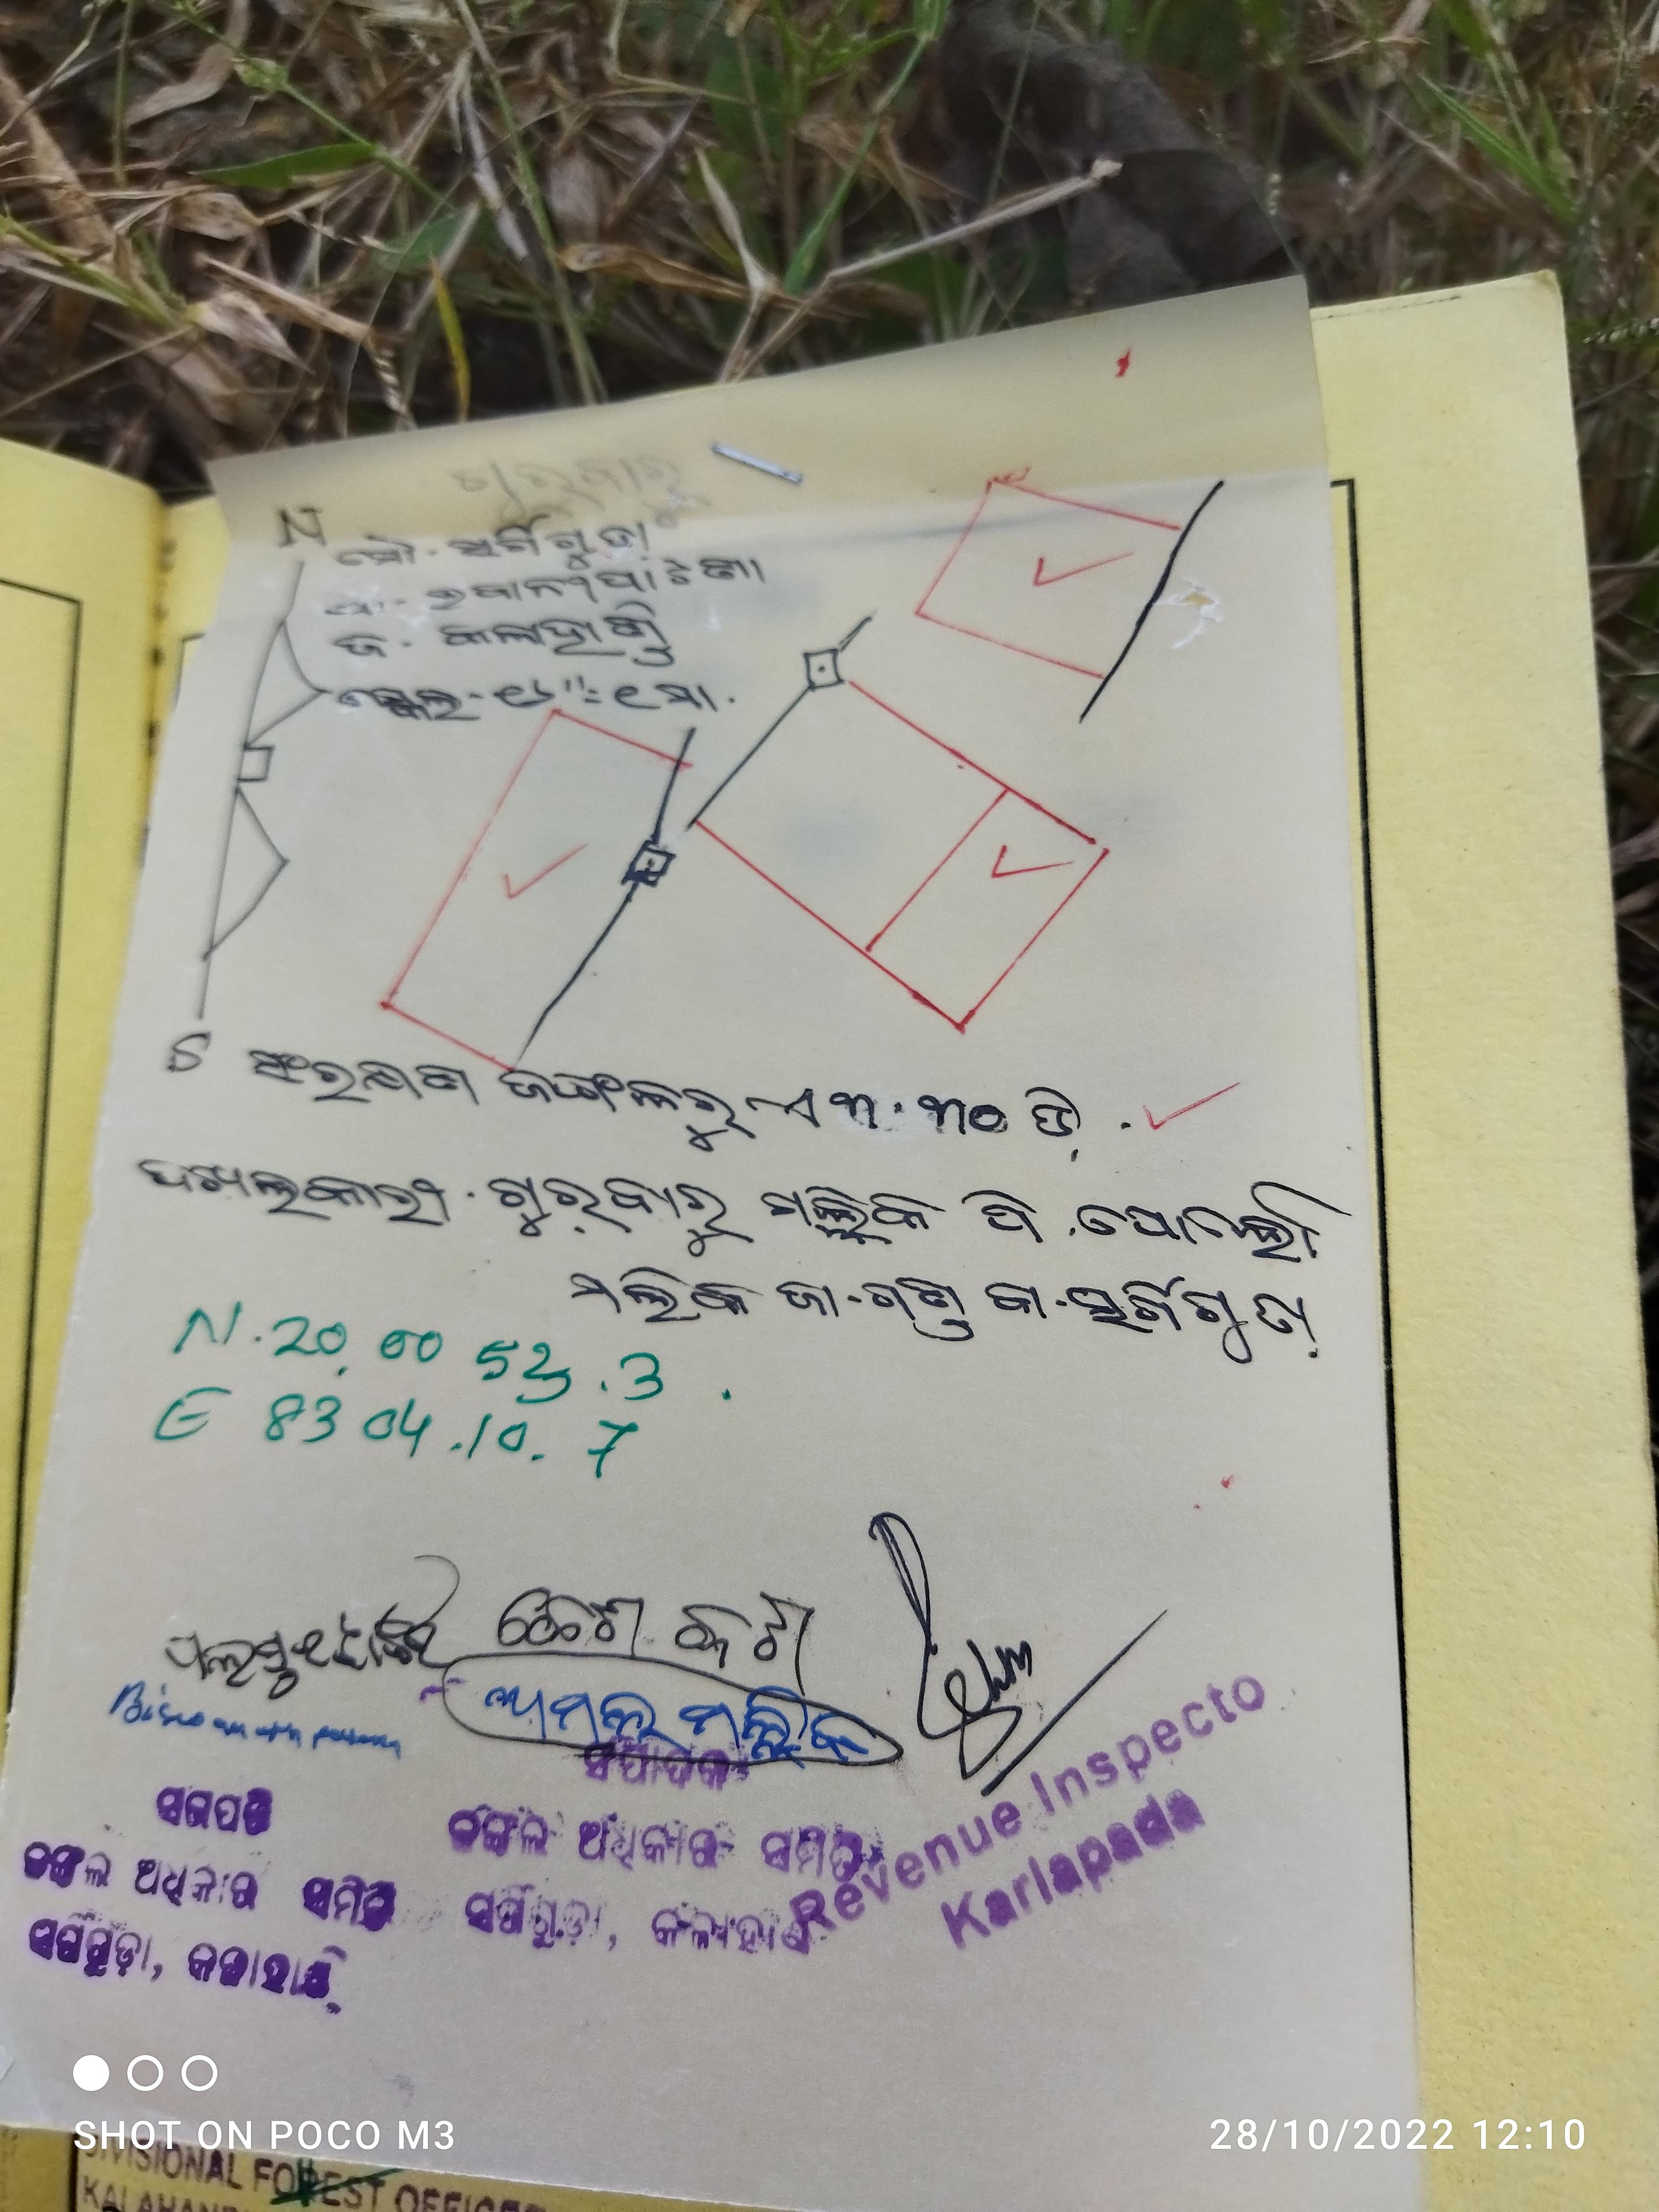 ଗୁରୁବାରୁ
N
ମୌ. ସର୍ଗିଗୁଡ଼ା
ଭବାନୀପାଟଣା
ଜି. କଳାହାଣ୍ଡି
ସ୍କେଲ - ୧୬" = ୧ ମା.
S
ସଂରକ୍ଷିତ ଜଙ୍ଗଲରୁ ଏ ୩.୩୦ ଡି.
ଦଖଲକାରୀ. ଗୁରୁବାରୁ ମଲ୍ଲିକ ପି.
ମଲିକ ଜା. ଗଣ୍ଡ ବା. ସର୍ଗିଗୁଡ଼ା
N. 20 00 53.3
E 83 04.10.7
ଅମଲ ମଲ୍ଲିକ
ସମ୍ପାଦକ
ସଭାପତି
ଜଙ୍ଗଲ ଅଧିକାର ସମିତି
ଜଙ୍ଗଲ ଅଧିକାର ସମିତି
ସର୍ଗିଗୁଡ଼ା, କଳାହାଣ୍ଡି
ସର୍ଗିଗୁଡ଼ା, କଳାହାଣ୍ଡି
Revenue Inspecto
Karlapada
SHOT ON POCO M3
28/10/2022 12:10
DIVISIONAL FOREST OFFICER